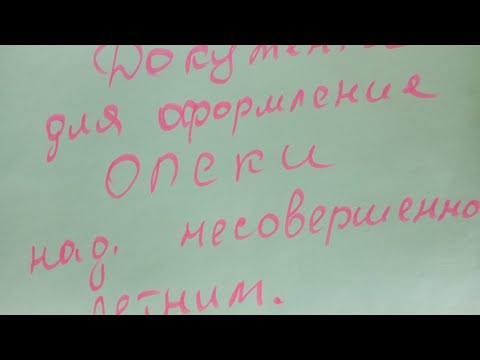 Документы
для оформления
ОПЕКИ
над. несовершенно
летним.